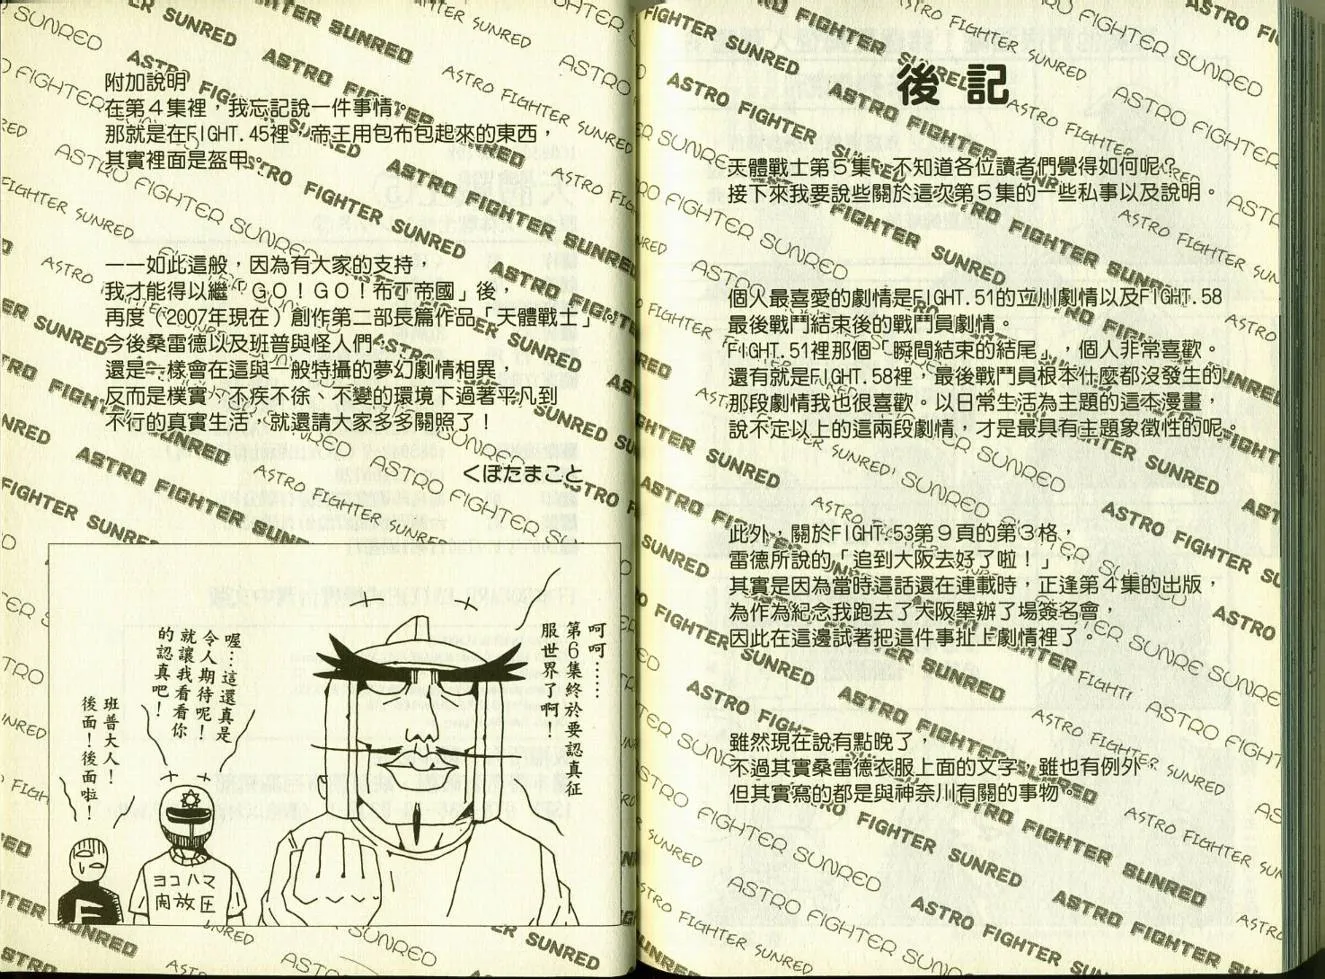 後記
天體戰士第5集，不知道各位讀者們覺得如何呢？
接下來我要說些關於這次第5集的一些私事以及說明。
個人最喜愛的劇情是FIGHT.51的立川劇情以及FIGHT.58
最後戰鬥結束後的戰鬥員劇情。
FIGHT.51裡那個「瞬間結束的結尾」，個人非常喜歡。
還有就是FIGHT.58裡，最後戰鬥員根本什麼都沒發生的
那段劇情我也很喜歡。以日常生活為主題的這本漫畫，
說不定以上的這兩段劇情，才是最具有主題象徵性的呢。
此外，關於FIGHT.53第9頁的第3格，
雷德所說的「追到大阪去好了啦！」，
其實是因為當時這話還在連載時，正逢第4集的出版，
為作為紀念我跑去了大阪舉辦了場簽名會，
因此在這邊試著把這件事扯上劇情裡了。
雖然現在說有點晚了
不過其實桑雷德衣服上面的文字，雖也有例外
但其實寫的都是與神奈川有關的事物
附加說明
在第4集裡，我忘記說一件事情。
那就是在FIGHT.45裡，帝王用包布包起來的東西，
其實裡面是盔甲。
——如此這般，因為有大家的支持，
我才能得以繼「GO！GO！布丁帝國」後，
再度（2007年現在）創作第二部長篇作品「天體戰士」。
今後桑雷德以及班普與怪人們，
還是一樣會在這與一般特攝的夢幻劇情相異，
反而是樸實、不疾不徐、不變的環境下過著平凡到
不行的真實生活，就還請大家多多關照了！
くぼたまこと
呵呵……
第6集終於要認真征
服世界了啊！
喔…這還真是
令人期待呢！
就讓我看看你
的認真吧！
班普大人！
後面！後面啦！
ヨコハマ
開放区
F
ASTRO FIGHTER SUNRED